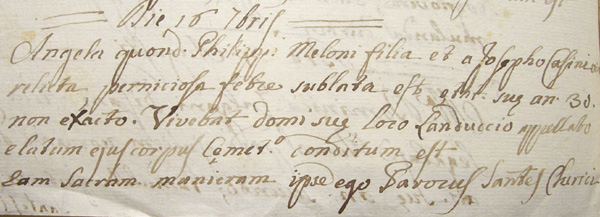 Die 16 7bris
Angela quond. Philippi Meloni filia et a Josepho Casini
relicta perniciosa febre sublata est etat. suę an. 30.
non exacto. Vivebat domi suę loco Landuccio appellato
elatum ejus corpus Cęmet.o conditum est
Eam Sacram manieram ipse ego Parocus Santes